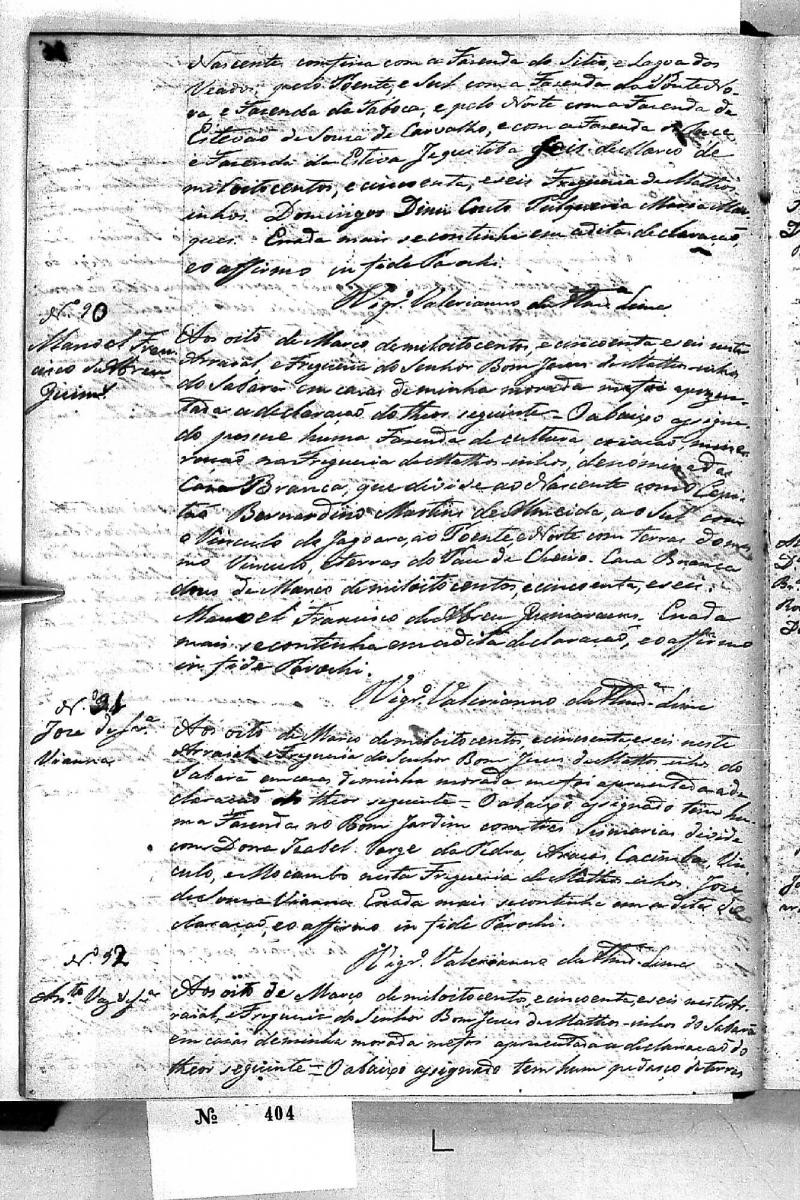 Nascente confina com a Fazenda do Sitio, e Lagoa dos
Viados, pelo Poente, e Sul com a Fazenda da Ponte No-
va, e Fazenda da Taboca, e pelo Norte com a Fazenda de
Estevão de Souza de Carvalho, e com a Fazenda
e Fazenda da Estiva Jequitibá seis de Março de
mil oito centos, e cincoenta, e seis Freguesia de Mathos
inhos. Domingos Diniz Couto Maria Mar-
ques. E nada mais se continha em a dita declaração,
e o affirmo in fide Parochi.
Vigr.º Valerianno de Alm.da Lima
N.º 90
Manoel Fran-
cisco de Abreu
Guim.es
Aos oito de Março de mil oito centos, e cincoenta e seis neste
Arraial, e Freguesia do Senhor Bom Jesus de Mathos-inhos
do Sabará em casas de minha morada me foi aprezen-
tada a declaração do theor seguinte = O abaixo assigna-
do possue huma Fazenda de cultura, criação, mine-
ração na Freguesia de Mathos-inhos, denominada
Caza Branca, que divide ao Nascente com o Capi-
tão Bernardino Martins de Almeida, ao Sul com
o Vinculo do Jagoara, ao Poente e Norte com terras do mes-
mo Vinculo, e terras do Pau de Cheiro. Caza Branca
dous de Março de mil oito centos, e cincoenta, e seis.
Manoel Francisco de Abreu Guimaraens. E nada
mais se continha em a dita declaração, e o affirmo
in fide Parochi.
Vigr.º Valerianno de Alm.da Lima
N.º 91
Joze de Sz.ª
Vianna
Aos oito de Março de mil oito centos, e cincoenta e seis neste
Arraial, e Freguesia do Senhor Bom Jesus de Mathos-inhos do
Sabará em casas de minha morada me foi aprezentada a de
claração do theor seguinte = O abaixo assignado tem hu-
ma Fazenda no Bom Jardim com tres Sismarias divide
com Dona Izabel Jorge da Pedra, Cacimbas, Vin-
culo, e Mocambo nesta Freguesia de Mathos-inhos. Joze
de Souza Vianna. E nada mais se continha em a dita de
claração, e o affirmo in fide Parochi.
Vigr.º Valerianno de Alm.da Lima
N.º 92
An.to Vaz de Sz.ª
Aos oito de Março de mil oito centos, e cincoenta, e seis neste Ar-
raial, e Freguesia do Senhor Bom Jesus de Mathos-inhos do Sabará
em casas de minha morada me foi aprezentada a declaração do
theor seguinte = O abaixo assignado tem hum pedaço de terras
№ 404